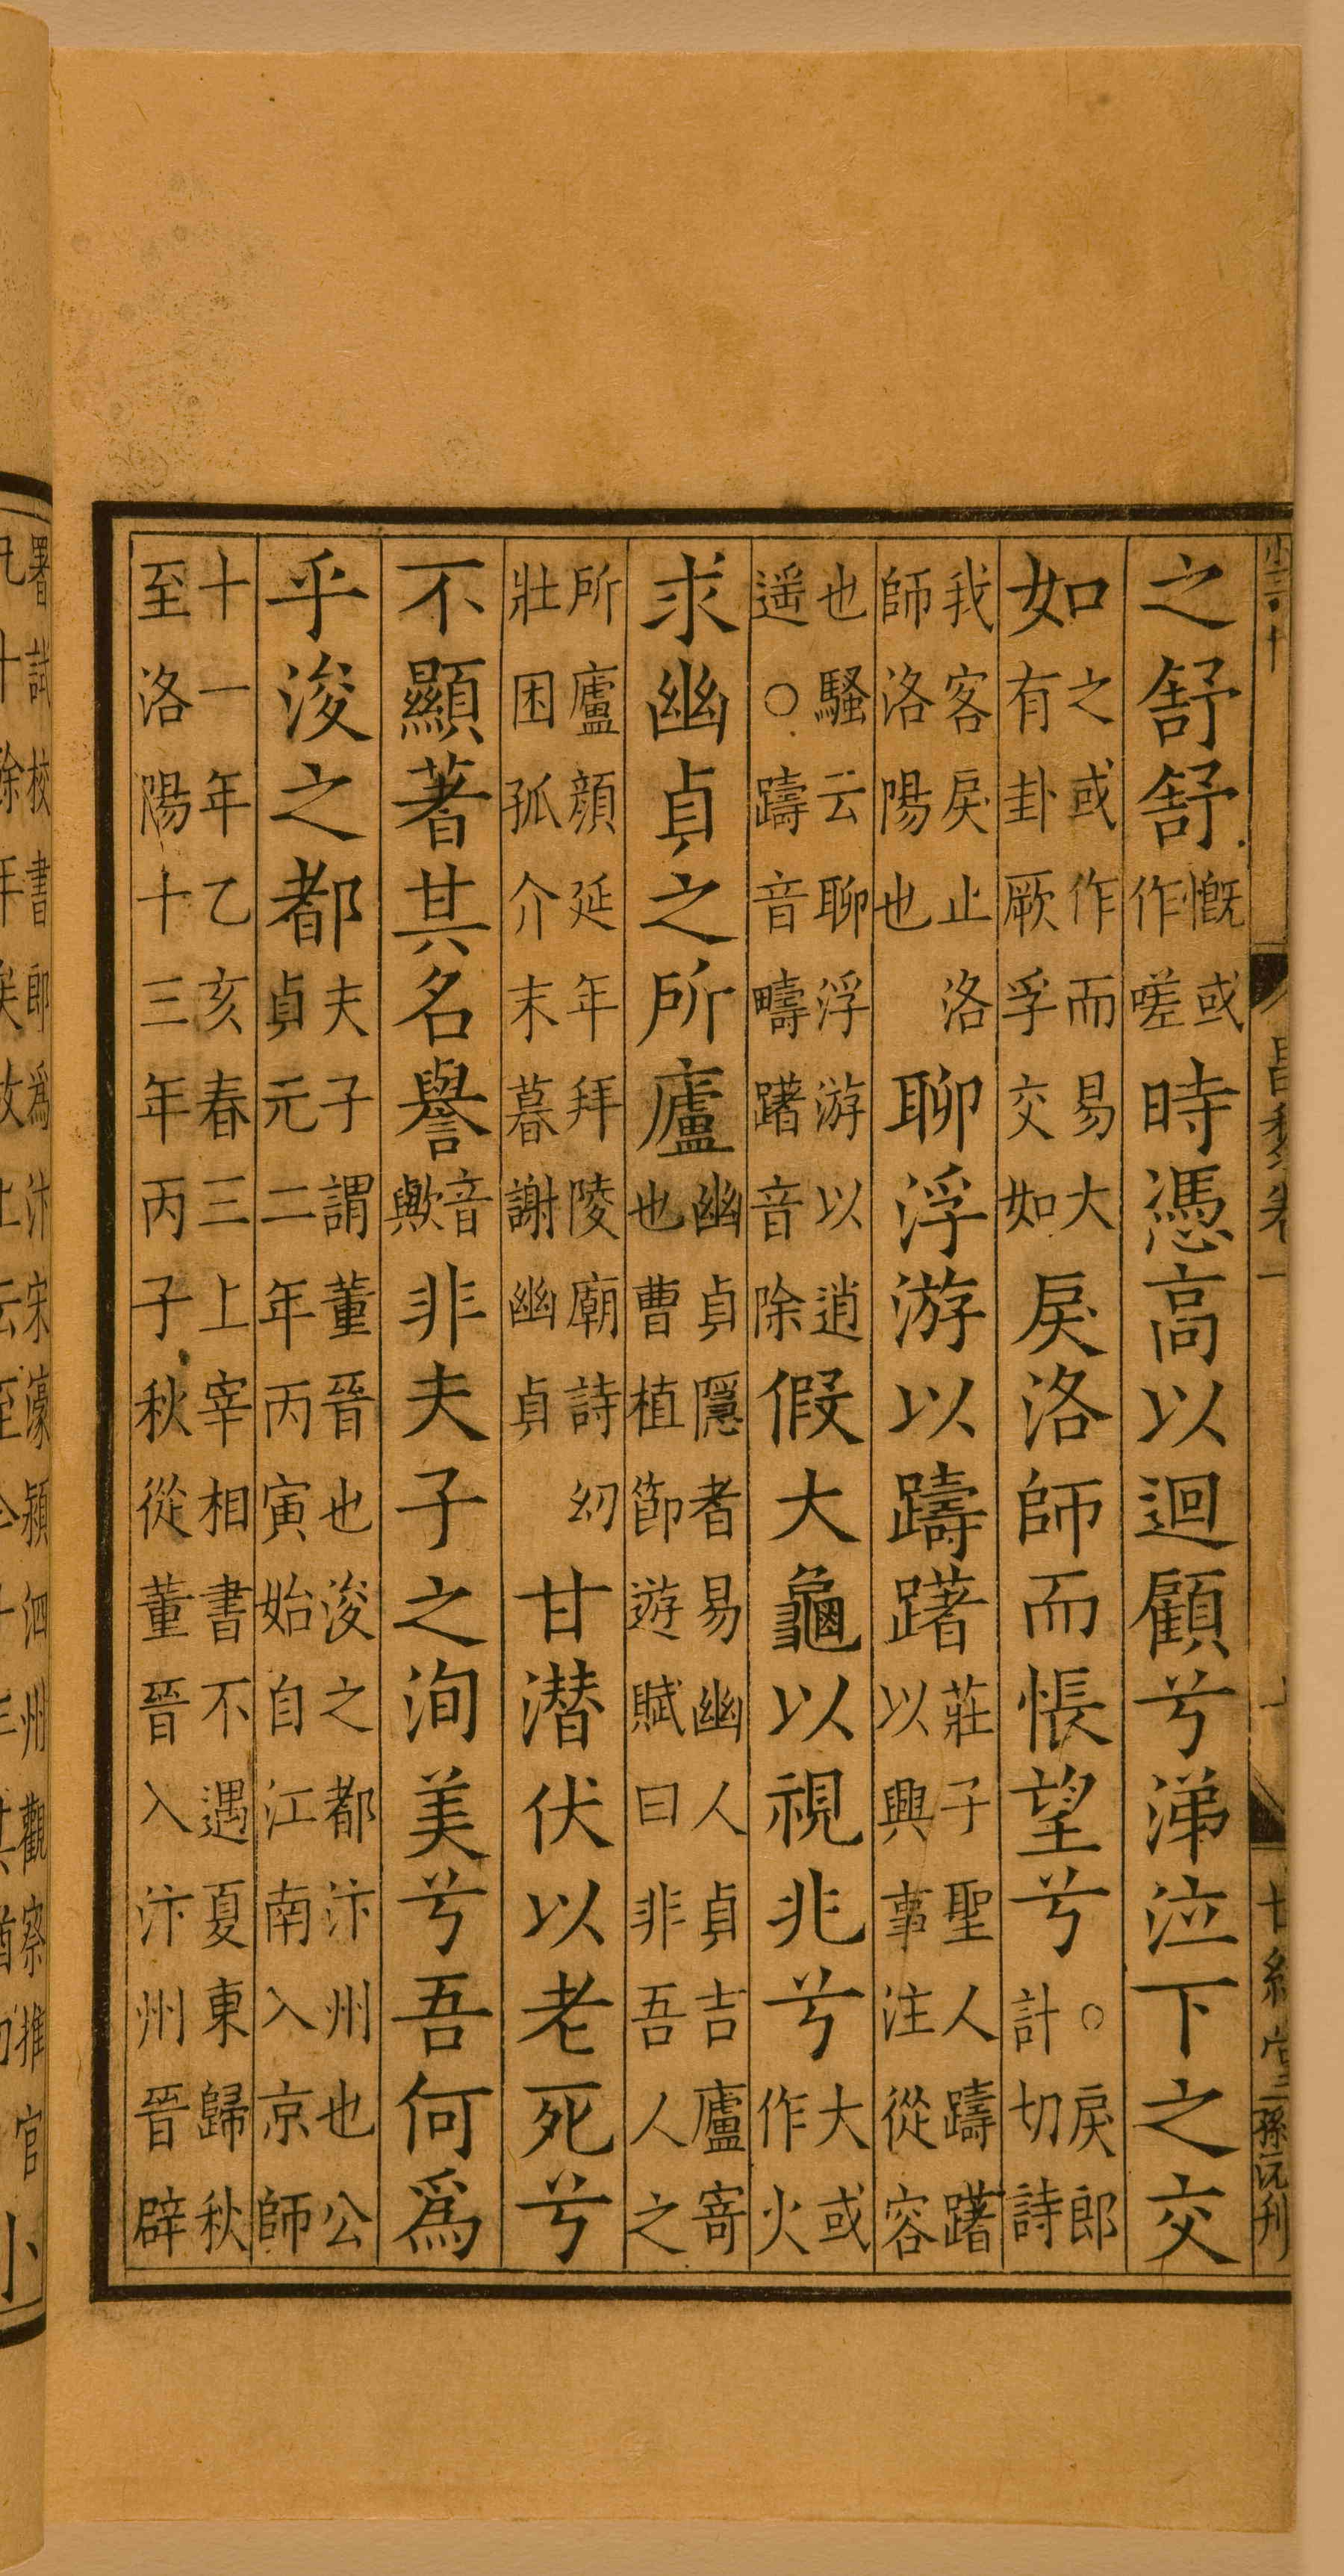 之舒舒慨或作嗟時憑高以迴顧兮涕泣下之交
如之或作而易大有卦厥孚交如戾洛師而悵望兮○戾郎計切詩
我客戾止洛師洛陽也聊浮游以躊躇莊子聖人躊躇以興事注從容
也騷云聊浮游以逍遥○躊音疇躇音除假大龜以視兆兮大或作火
求幽貞之所廬幽貞隱者易幽人貞吉廬寄也曹植節遊賦曰非吾人之
所廬顏延年拜陵廟詩幼壯困孤介末暮謝幽貞甘潜伏以老死兮
不顯著其名譽音歟非夫子之洵美兮吾何爲
乎浚之都夫子謂董晉也浚之都汴州也公貞元二年丙寅始自江南入京師
十一年乙亥春三上宰相書不遇夏東歸秋至洛陽十三年丙子秋從董晉入汴州晉辟
署試校書郎爲汴宋濠潁泗州觀察推官